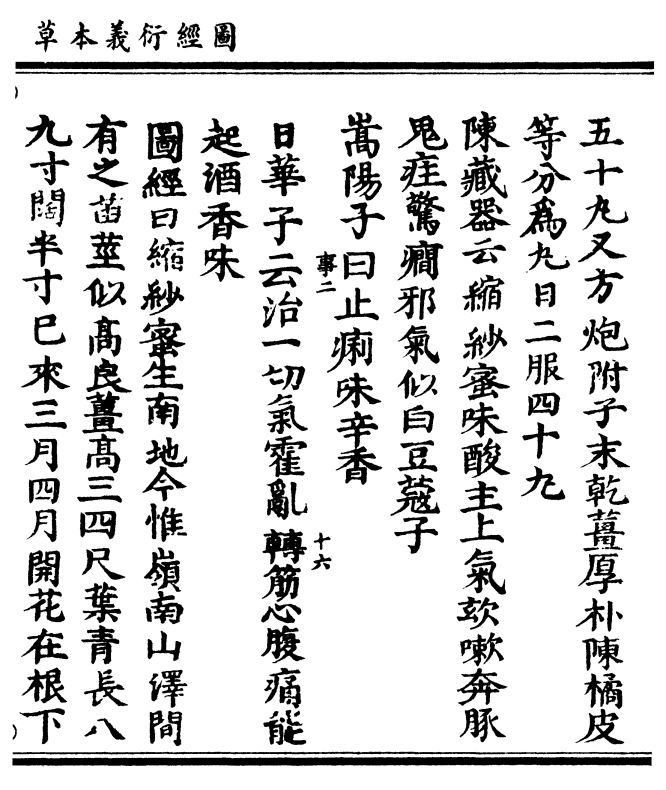 圖經衍義本草
五十丸又方炮附子末乾薑厚朴陳橘皮
等分為丸日二服四十丸
陳藏器云縮紗蜜味酸主上氣欬嗽奔豚
鬼疰驚癇邪氣似白豆蔻子
嵩陽子曰止痢味辛香
事二
十六
日華子云治一切氣霍亂轉筋心腹痛能
起酒香味
圖經曰縮紗蜜生南地今惟嶺南山澤間
有之苗莖似高良薑高三四尺葉青長八
九寸闊半寸已來三月四月開花在根下